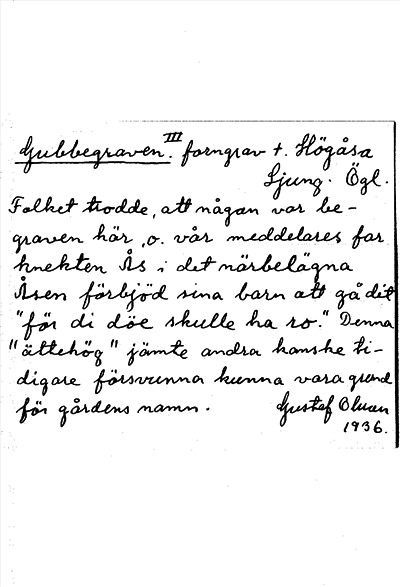 Gubbegraven. III forngrav t. Högåsa
Ljung. Ögl.
Folket trodde, att någon var be-
graven här, o. vår meddelares far
knekten Ås i det närbelägna
Åsen förbjöd sina barn att gå dit
"för di döe skulle ha ro." Denna
"ättehög" jämte andra kanske ti-
digare försvunna kunna vara grund
för gårdens namn. Gustaf Olson
1936.